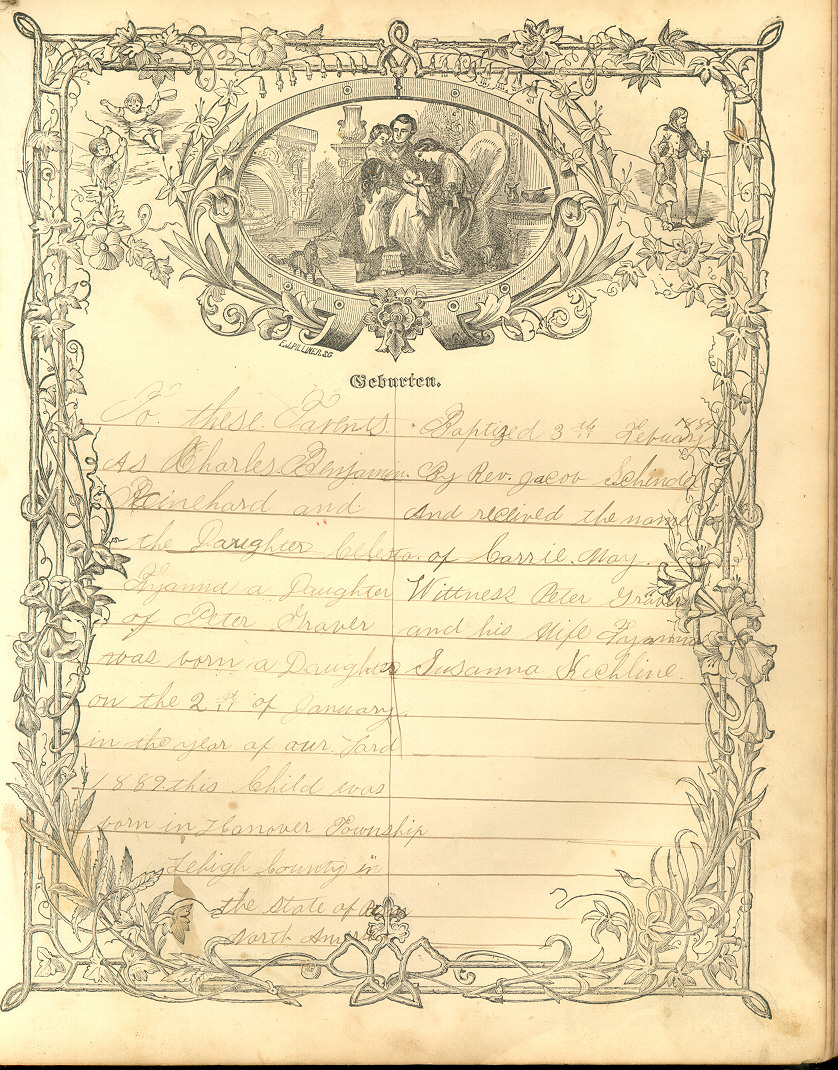 E.J. PILLINER. SC
Geburten.
To. these. Parents.
As Charles. Benjamin.
Reinehard and
the Daughter Celesta.
Fyanna a Daughter
of Peter Graver
was born a Daughter
on the 2 st of January.
in the year of our Lord
1889. this Child was
born in Hanover Township
Lehigh County in
the State of
North America
Baptized 3 th Febuary 1889
By Rev. Jacob Schindel
and recived the name
of Carrie. May.
Wittness Peter Graver
and his Wife Fyanna
Susanna Kichline.